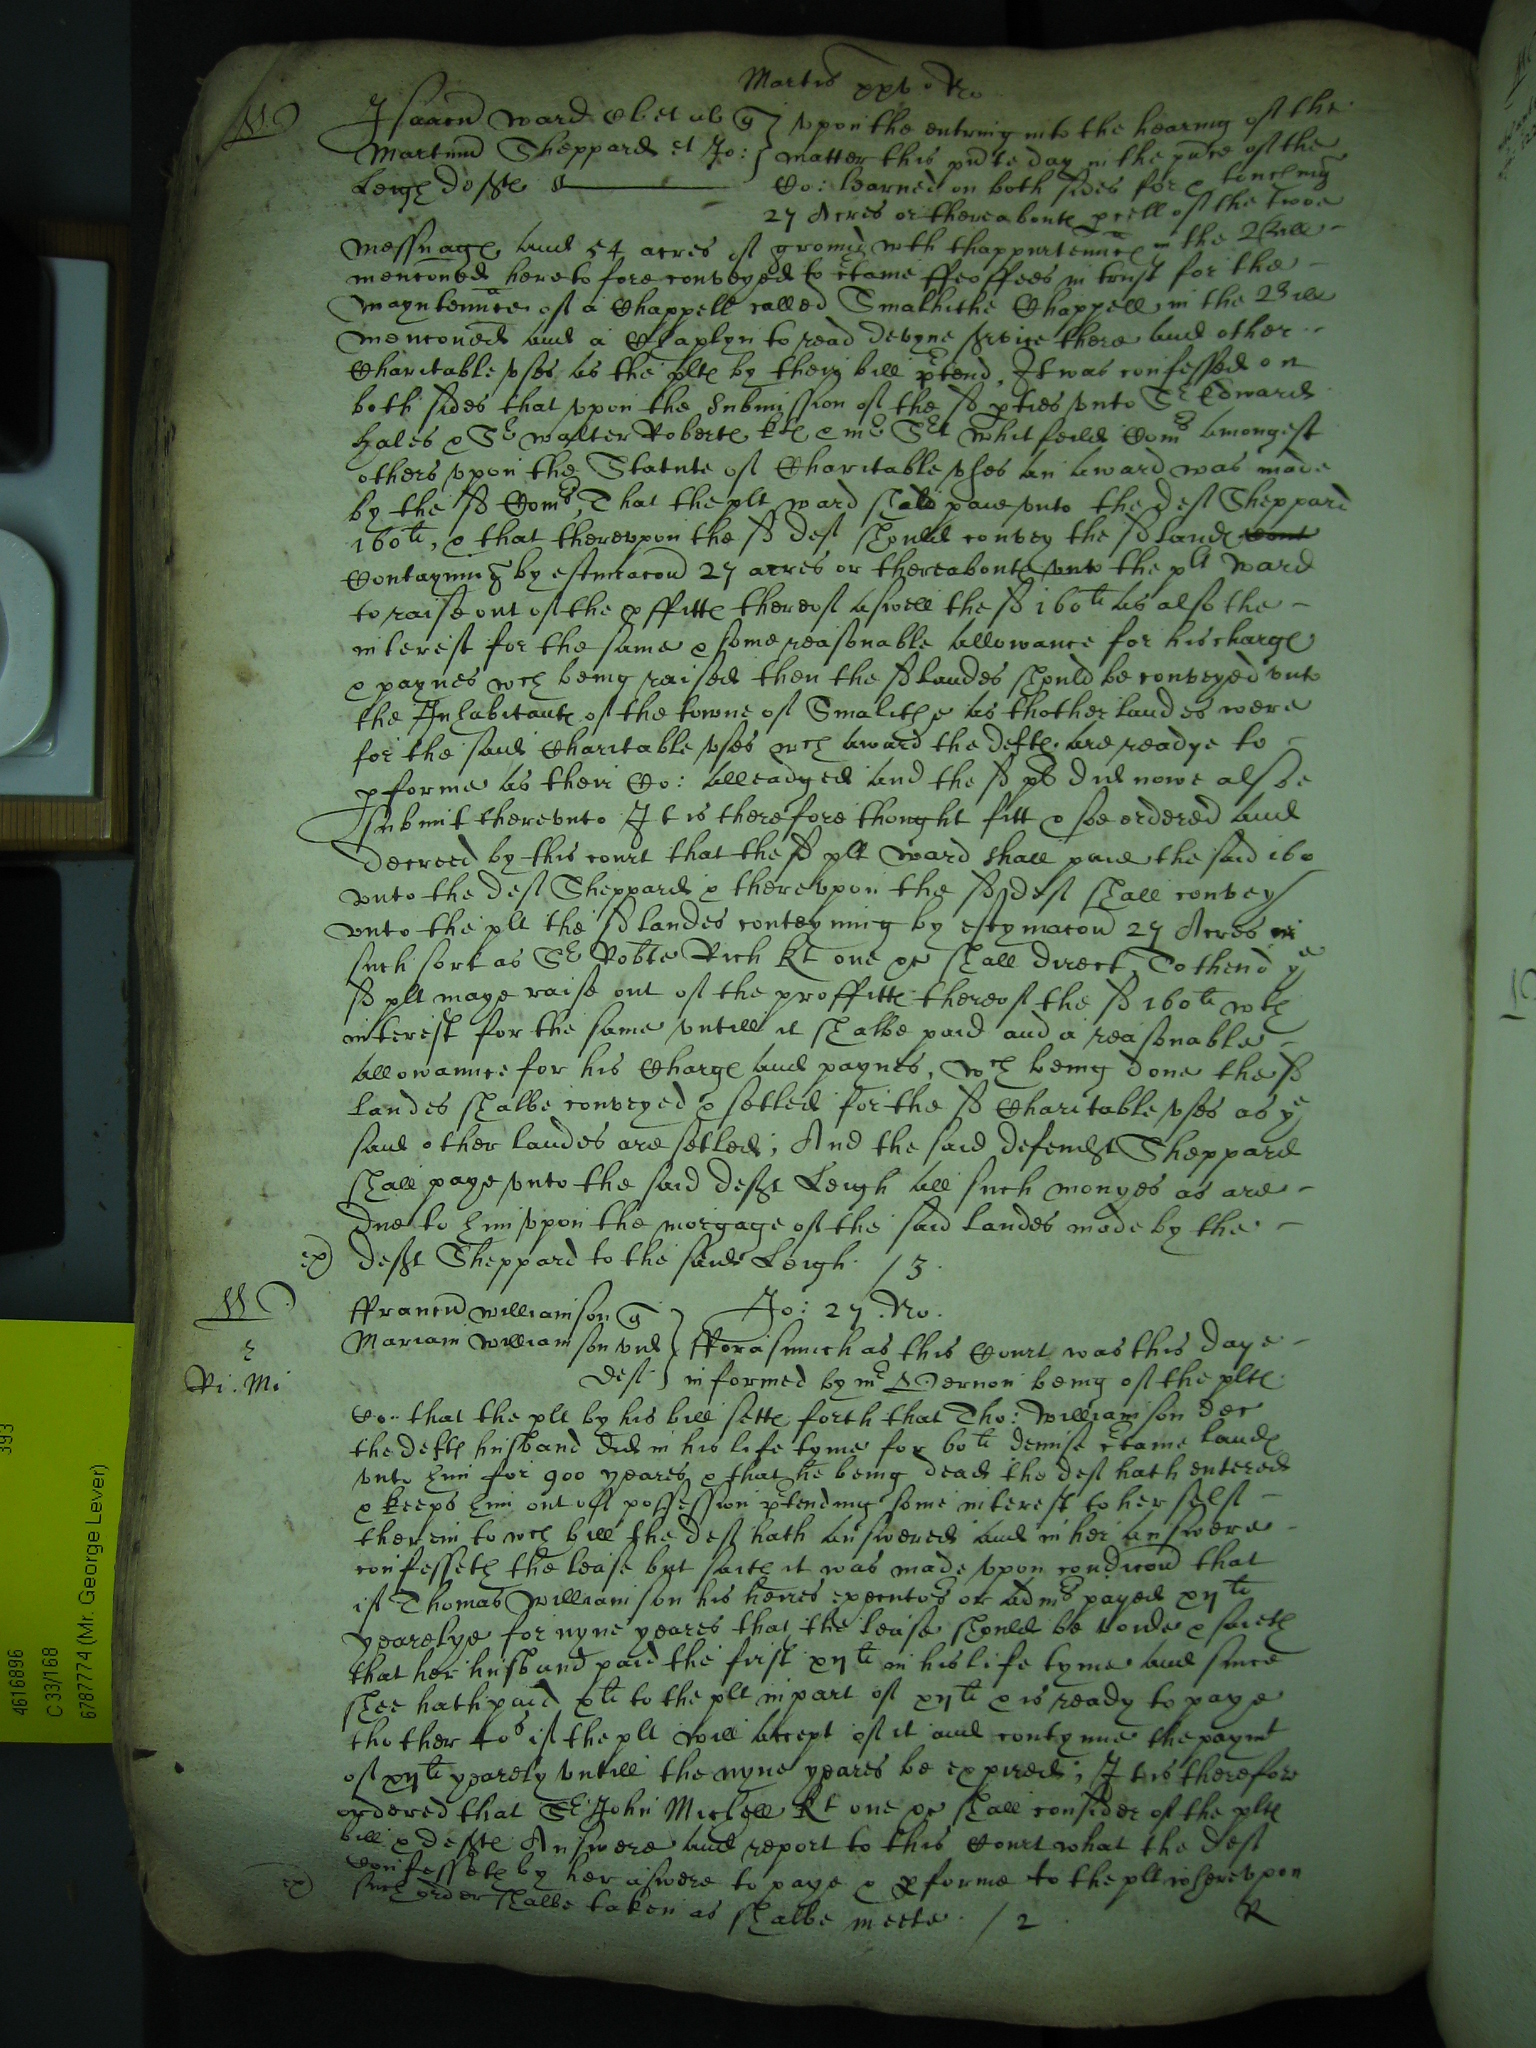 Martis xxv No
W
Isaacu Ward Cl. et al q
Martinu Sheppard et Jo:
Leigh defts
Vpon the entring into the hearing of the
matter this pnte day in the pnce of the
Co: learned on both sides for & touching
27 Acres or thereabouts pcell of the twoe
messuages and 54 acres of ground wth thappurtennces in the Bill
menconed heretofore conveyed to ctaine ffeoffees in trust for the
mayntennce of a Chappell called Smalhithe Chappell in the Bill
menconed and a Chaplyn to read devyne service there and other
Charitable vses as the plts by their bill ptend, It was confessed on
both sides that vpon the Submission of the sd pties vnto Sr Edward
Hales & Sr Walter Roberts kts & mr Sert Whitfeild Comrs amongest
others vpon the Statute of Charitable vses an award was made
by the sd Comrs, That the plt Ward shold paie vnto the deft Sheppard
160li, & that therevpon the sd deft should convey the sd lands cont
Contayning by estimacon 27 acres or thereabouts vnto the plt Ward
to raise out of the pffitts thereof aswell the sd 160li as also the
interest for the same & some reasonable allowance for his charge
& paynes wch being raised then the sd landes should be conveyed vnto
the Inhabitants of the towne of Smalith as thother landes were
for the said Charitable vses wch award the defts are readye to
pforme as their Co: alleadged and the sd plt did nowe alsoe
submit therevnto It is therefore thought fitt & soe ordered and
decreed by this court that the sd plt Ward shall paie the said 160
vnto the deft Sheppard & therevpon the sd deft shall convey
vnto the plt the sd landes conteyning by estymacon 27 Acres in
such sort as Sr Robte Rich kt one &c shall direct, To thend ye
sd plt maye raise out of the proffitts thereof the sd 160li wth
interest for the same vntill it shalbe paid and a reasonable
allowannce for his Charge and paynes, wch being done the sd
landes shalbe conveyed & setled for the sd Charitable vses as ye
said other landes are setled; And the said defendt Sheppard
shall paye vnto the said deft Leigh all such monyes as are
due to him vpon the morgage of the said landes made by the
ex) deft Sheppard to the said Leigh. / 3.
W
Ri. Mi
ffrancu Williamson q
Mariam Williamson vid
deft
Jo: 27 No.
fforasmuch as this Court was this daye
informed by mr Vernon being of the plts
Co: that the plt by his bill setts forth that Tho: Williamson dec
the defts husband did in his life tyme for 60li demise ctaine lands
vnto him for 900 yeares & that he being dead the deft hath entered
& keeps him out of possession ptending some interest to her selfe
therein to wch bill the deft hath answered and in her answere
confesseth the lease but saith it was made vpon condicon that
if Thomas Williamson his heires executors or admrs payed xijli
yearelye for nyne yeares that the lease should be voide & saieth
that her husband paid the first xijli in his life tyme and since
shee hath paid xli to the plt in part of xijli & is ready to paye
thother 40s if the plt will accept of it and contynue the paymt
of xijli yearely vntill the nyne yeares be expired; It is therefore
ordered that Sr John Michell kt one &c shall consider of the plts
bill & defts Answere and report to this Court what the deft
confesseth by her aswere to paye & pforme to the plt wherevpon
ex) such order shalbe taken as shalbe meete. / 2. R
4616896
393
C 33/168
6787774 (Mr. George Lever)